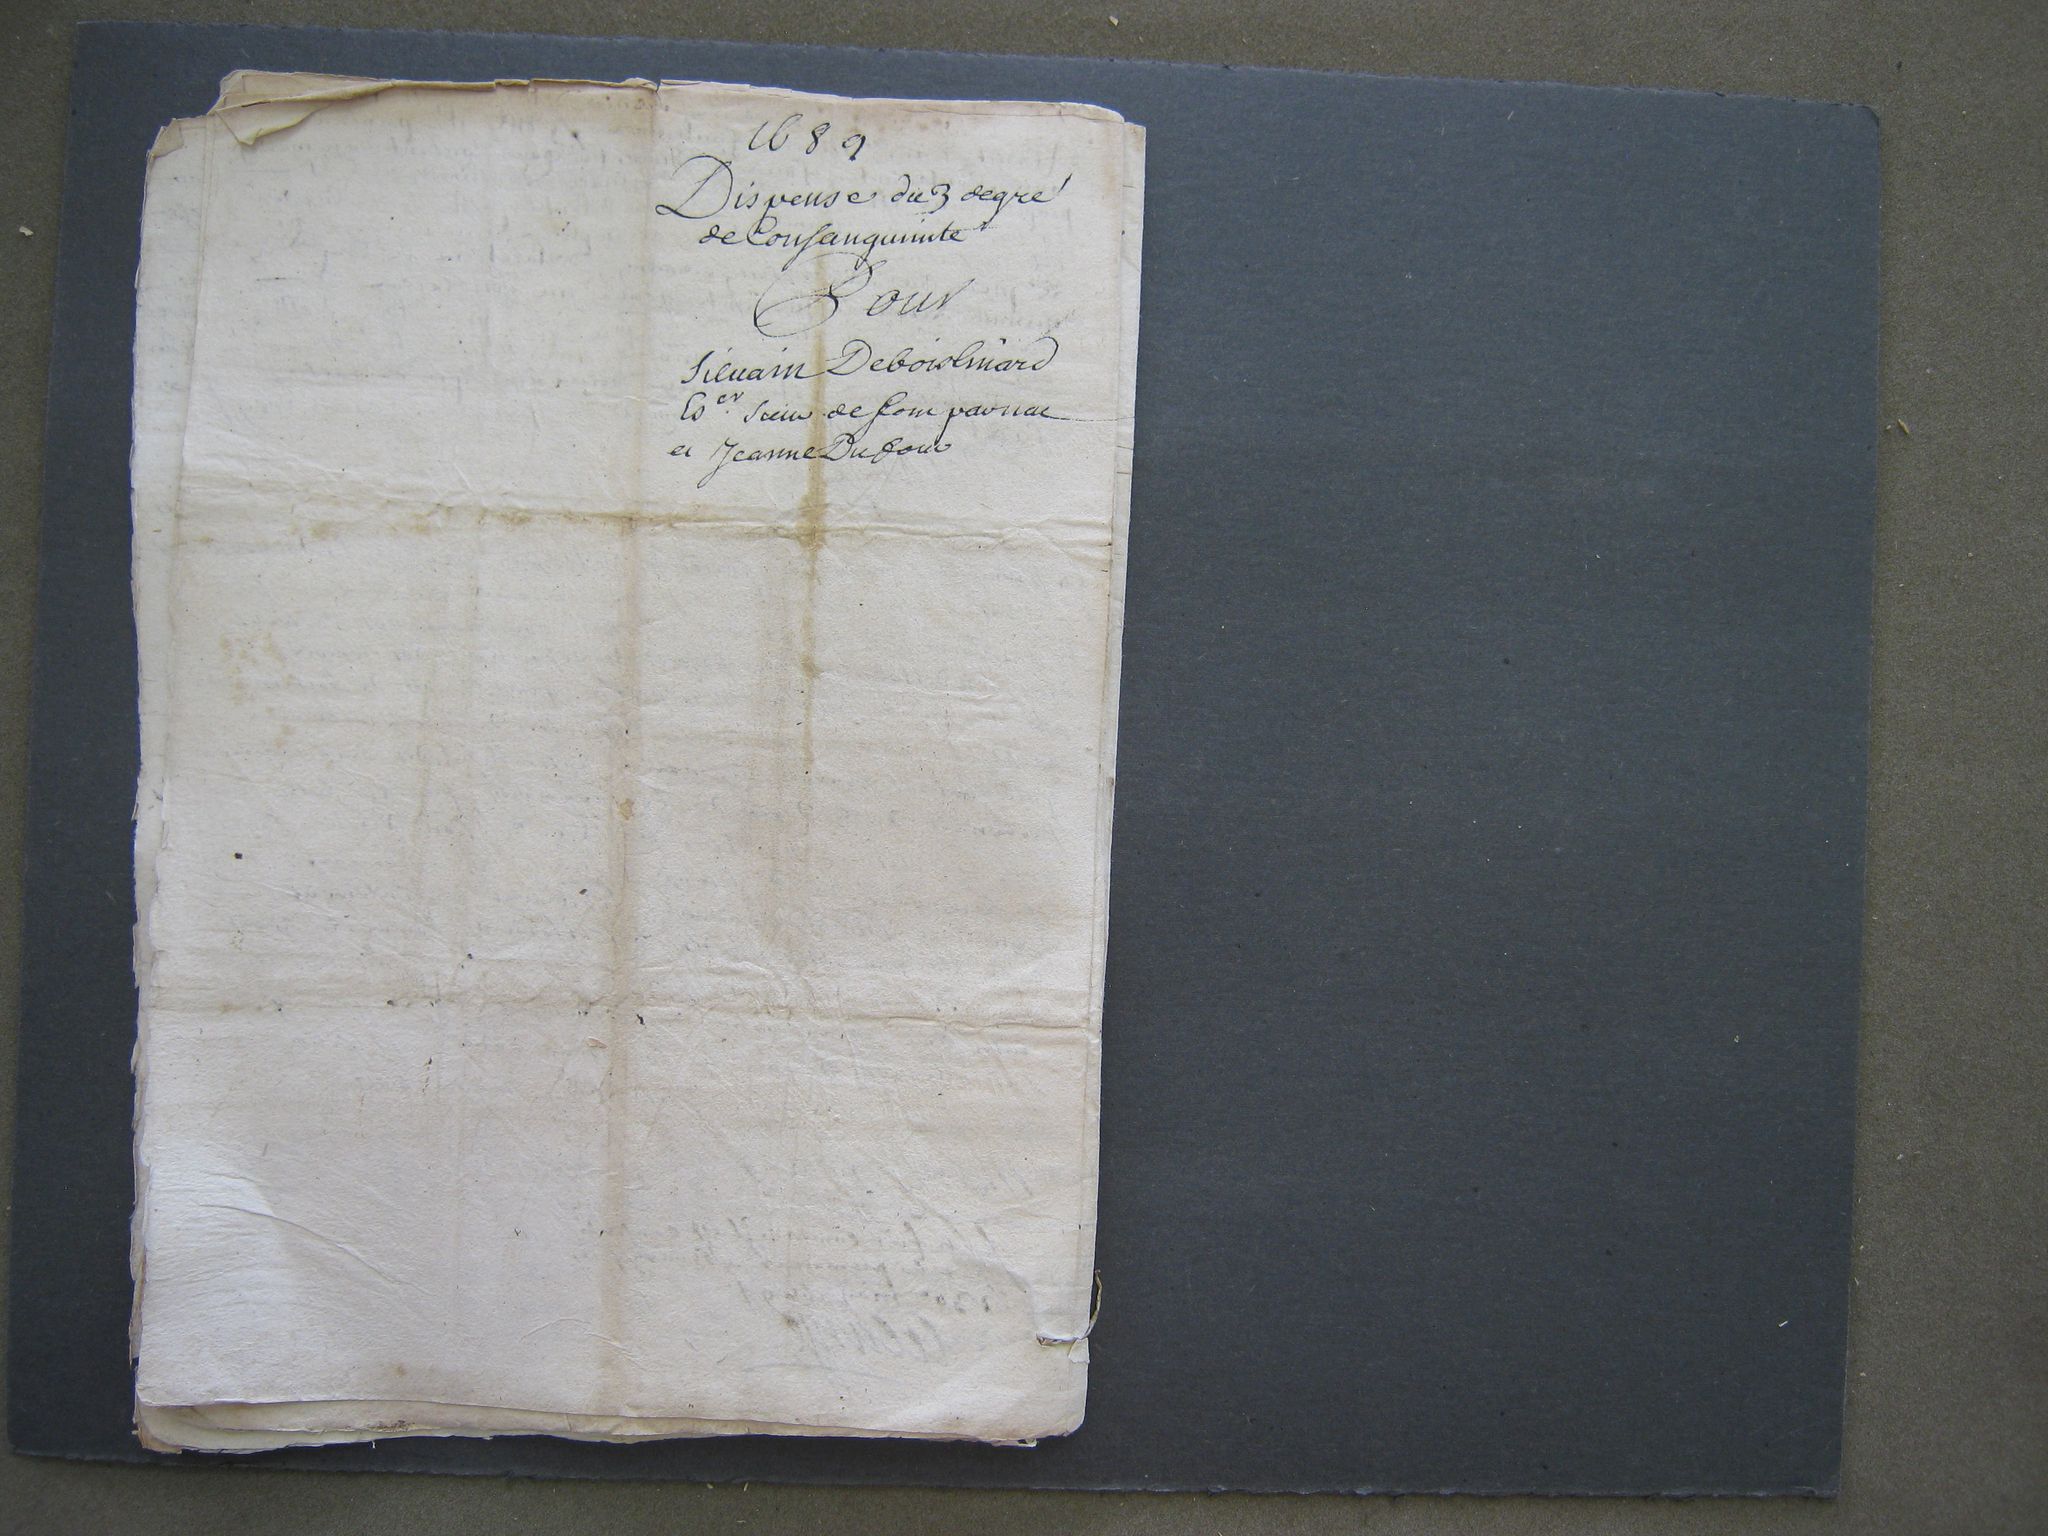 1689
Dispense du 3 degré
de Consanguinité
Pour
Silvain Deboislinard
Es.er Sieur de
et Jeanne Dufour